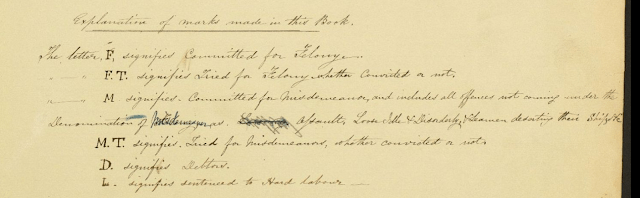 Explanation of marks made in this Book.
The letter, F. signifies Committed for Felony
" " F.T. signifies Tried for Felony whether Convicted or not.
" M signifies. Committed for Misdemeanor, and includes all Offences not coming under the
Denomination of as. Assault, Loose Idle & Disorderly, & Seamen deserting their Ships &c
M.T. signifies. Tried for Misdemeanors, whether convicted or not.
D. signifies Debtors.
L. signifies sentenced to Hard labour